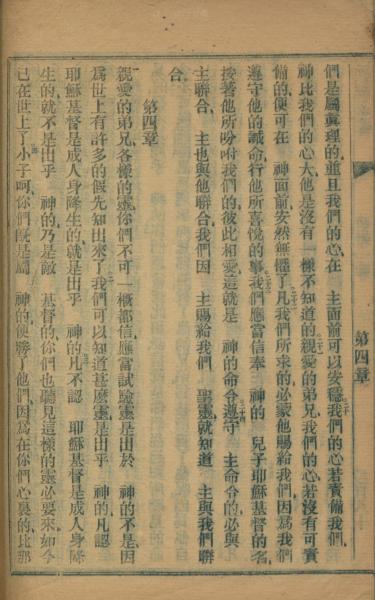 們是屬眞理的、並且我們的心、在　主面前可以安穩、我們的心若責備我們、
神比我們的心大、他是沒有一樣不知道的、親愛的弟兄、我們的心若沒有可責
備的、便可在　神面前、安然無懼了、凡我們所求的、必蒙他賜給我們、因爲我們
遵守他的誡命、行他所喜悅的事、我們應當信奉　神的　兒子耶穌基督的名、
按著他所吩咐我們的、彼此相愛、這就是　神的命令、遵守　主命令的、必與
主聯合、　主也與他聯合、我們因　主賜給我們　聖靈、就知道　主與我們聯
合、
第四章
親愛的弟兄、各樣的靈、你們不可一概都信、應當試驗靈是出於　神的不是、因
爲世上有許多的假先知出來了、我們可以知道甚麽靈是出乎　神的、凡認
耶穌基督是成人身降生的、就是出乎　神的、凡不認　耶穌基督是成人身降
生的、就不是出乎　神的、乃是敵　基督的、你們也聽見這樣的靈必要來、如今
已在世上了、小子呵、你們既是屬　神的、便勝了他們、因爲在你們心裏的、比那
第四章